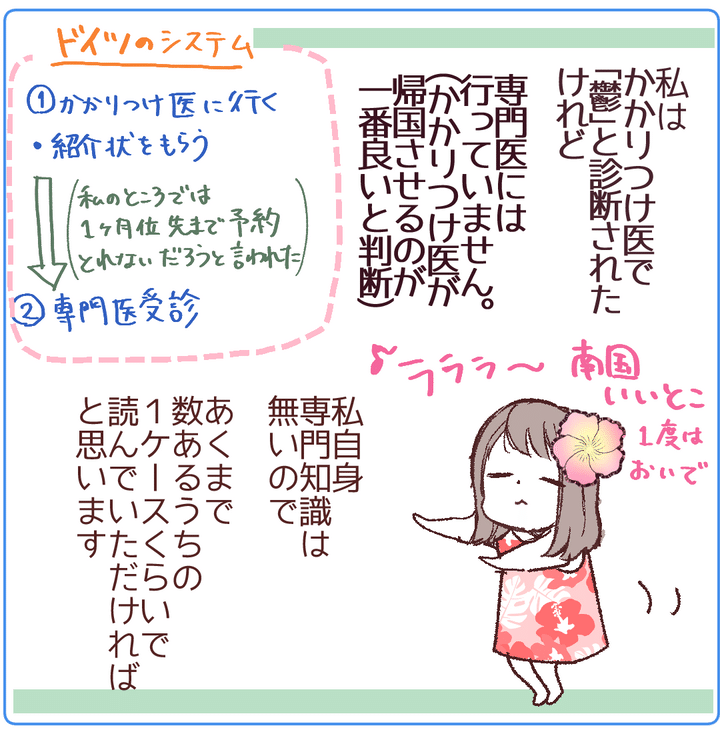 私は
かかりつけ医で
「鬱」と診断された
けれど
専門医には
行っていません。
(かかりつけ医が
帰国させるのが
一番良いと判断)
ドイツのシステム
①かかりつけ医に行く
・紹介状をもらう
(私のところでは
1ヶ月位先まで予約
とれないだろうと言われた)
②専門医受診
♪ラララ〜
南国
いいとこ
1度は
おいで
私自身
専門知識は
無いので
あくまで
数あるうちの
1ケースくらいで
読んでいただければ
と思います